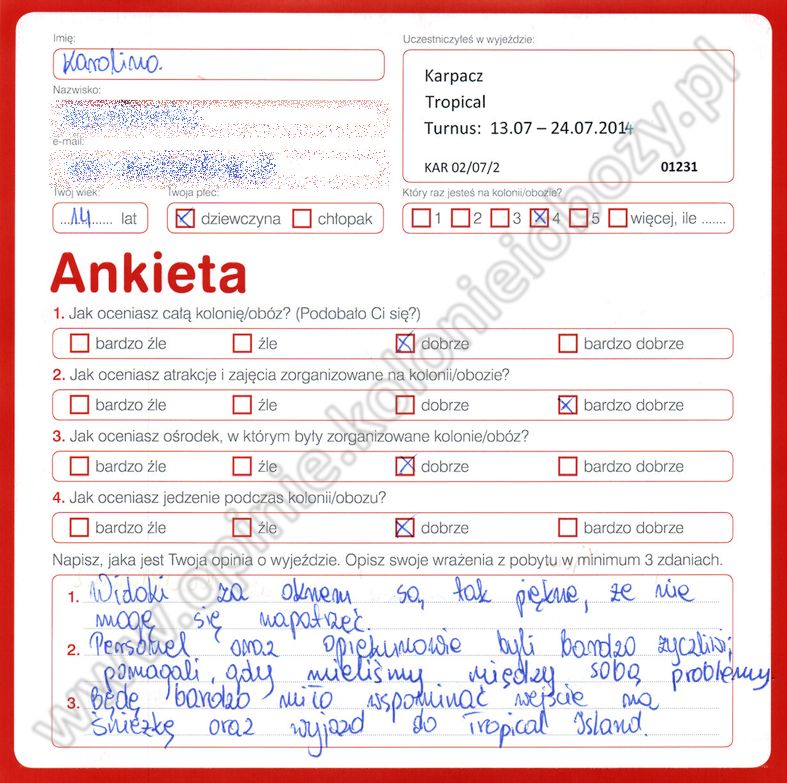 Imię:
Karolina.
Uczestniczyłeś w wyjeździe:
Karpacz
Tropical
Turnus: 13.07 – 24.07.2014
KAR 02/07/2 01231
Nazwisko:
e-mail:
Twój wiek:
...14...... lat
Twoja płeć:
dziewczyna chłopak
Który raz jesteś na kolonii/obozie?
1 2 3 4 5 więcej, ile .......
Ankieta
1. Jak oceniasz całą kolonię/obóz? (Podobało Ci się?)
bardzo źle źle dobrze bardzo dobrze
2. Jak oceniasz atrakcje i zajęcia zorganizowane na kolonii/obozie?
bardzo źle źle dobrze bardzo dobrze
3. Jak oceniasz ośrodek, w którym były zorganizowane kolonie/obóz?
bardzo źle źle dobrze bardzo dobrze
4. Jak oceniasz jedzenie podczas kolonii/obozu?
bardzo źle źle dobrze bardzo dobrze
Napisz, jaka jest Twoja opinia o wyjeździe. Opisz swoje wrażenia z pobytu w minimum 3 zdaniach.
1. Widoki za oknem są tak piękne, że nie
mogę się napatrzeć.
2. Personel oraz opiekunowie byli bardzo życzliwi,
pomagali, gdy mieliśmy między sobą problemy.
3. Będę bardzo miło wspominać wejście na
Śnieżkę oraz wyjazd do Tropical Island.
www.opinie.kolonieiobozy.pl